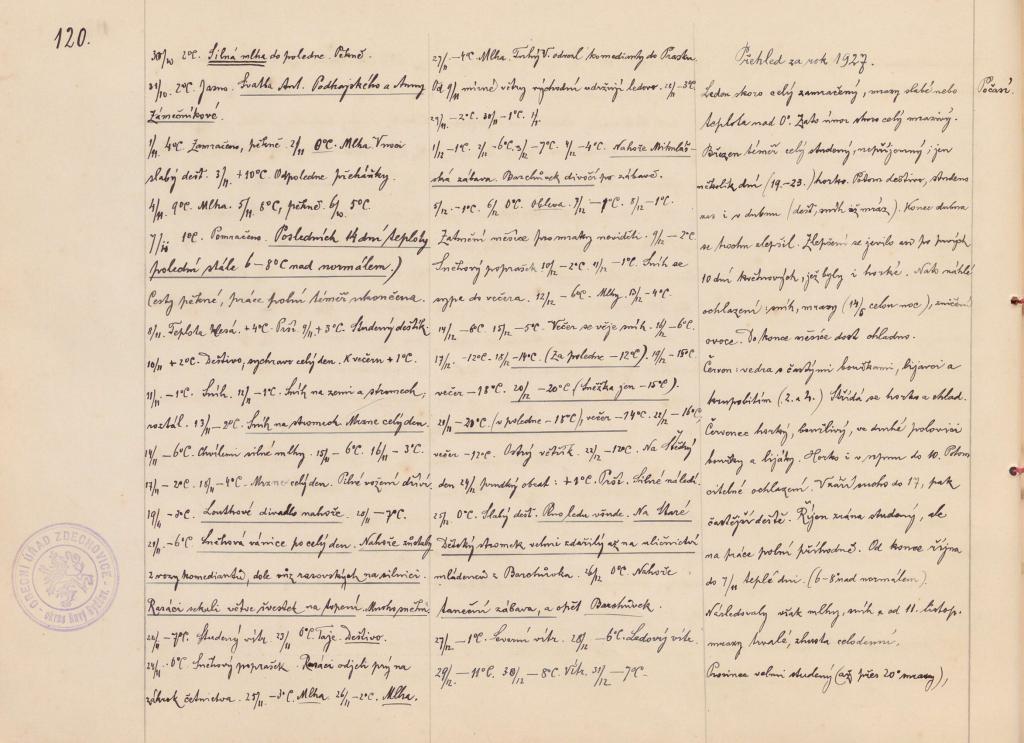 120.
30/10 2°C. Silná mlha do poledne. Pěkně.
31/10. 2°C. Jasno. Svatba Ant. Podhajského a Anny
Zámečníkové.
1/11. 4°C. Zamračeno, pěkně. 2/11 0°C. Mlha. V noci
slabý déšť. 3/11. +10°C. Odpoledne přeháňky.
4/11. 9°C. Mlha. 5/11. 8°C, pěkně. 6/10. 5°C.
7/11 1°C. Pomračeno. Posledních 14 dní teploty
polední stále 6–8°C nad normálem.)
Cesty pěkné, práce polní téměř ukončena.
8/11. Teplota klesá. +4°C. Prší. 9/11 +3°C. Studený deštík.
10/11 +2°C. Deštivo, sychravo celý den. K večeru +1°C.
11/11 –1°C. Sníh. 12/11 –1°C. Sníh na zemi a stromech,
roztál. 13/11 –2°C. Sníh na stromech. Mrzne celý den.
14/11 –6°C. Chvílemi silné mlhy. 15/11 –6°C. 16/11 –3°C.
17/11 –2°C. 18/11 –4°C. Mrzne celý den. Pilné vožení dříví.
19/11 –3°C. Loutkové divadlo nahoře. 20/11 –7°C.
21/11 –6°C. Sněhová vánice po celý den. Nahoře zůstaly
2 vozy komediantů, dole vůz na silnici.
větve švestek na topení.
22/11 –7°C. Studený vítr. 23/11 0°C. Taje. Deštivo.
24/11 0°C. Sněhový poprašek. odjeli prý na
zákrok četnictva. 25/11 –3°C. Mlha. 26/11 –2°C. Mlha.
27/11 –4°C. Mlha. V. odvezl komedianty do
Od 9/11 mírné větry východní udržují ledovo. 28/11 –3°C.
29/11. –2°C. 30/11 –1°C.
1/12 –1°C. 2/12 –6°C. 3/12 –7°C. 4/12 –4°C. Nahoře Mikuláš-
ská zábava. Barchůvek divočí po zábavě.
5/12. –1°C. 6/12 0°C. Obleva. 7/12 –1°C. 8/12 –1°C.
Zatmění měsíce pro mraky neviděti. 9/12 –2°C.
Sněhový poprašek 10/12 –2°C. 11/12 –1°C. Sníh se
sype do večera. 12/12 –6°C. Mlhy. 13/12 –4°C.
14/12 –8°C. 15/12 –5°C. Večer se věje sníh. 16/12 –6°C.
17/12. –12°C. 18/12 –14°C. (Za poledne –12°C). 19/12 –18°C.
večer –18°C. 20/12 –20°C (Sněžka jen –15°C).
21/12 –20°C. (v poledne –18°C), večer –14°C. 22/12 –16°C,
večer –12°C. Ostrý větřík. 23/12 –12°C. Na Štědrý
den 24/12 prudký obrat: +1°C. Prší. Silné náledí.
25/12 0°C. Slabý déšť. Rno leda všude. Na Staré
Dětský stromek velmi zdařilý až na
mládenců z Barchůvka. 26/12 0°C. Nahoře
taneční zábava, a opět Barchůvek.
27/12 –1°C. Severní vítr. 28/12 –6°C. Ledový vítr.
29/12. –11°C. 30/12 –8°C. Vítr. 31/12 –7°C.
Přehled za rok 1927.
Počasí.
Leden skoro celý zamračený, mrazy slabé nebo
teplota nad 0°. Zato únor skoro celý mrazivý.
Březen téměř celý studený, nepříjemný; jen
několik dní (19.–23.) horko. Potom deštivo, studeno
i v dubnu (déšť, sníh až mráz). Koncem dubna
se trochu zlepšil. Zlepšení se jevilo asi po prvých
10 dní květnových, jež byly i horké. Nato náhlé
ochlazení: sníh, mrazy (14/5 celou noc), zničení
ovoce. Do konce měsíce dost chladno.
Červen: vedra s častými bouřkami, lijavci a
krupobitím (2. a 4.) Střídá se horko a chlad.
Červenec horký, bouřlivý, ve druhé polovici
bouřky a lijáky. Horko i v srpnu do 10. Potom
citelné ochlazení. V září sucho do 17, pak
častější deště. Říjen zrána studený, ale
na práce polní příhodné. Od konce října
do 7/11 teplé dni. (6–8° nad normálem).
Následovaly však mlhy, sníh a od 11. listop.
mrazy trvalé, zhusta celodenní.
Prosinec velmi studený (až přes 20° mrazy),
OBECNÍ ÚŘAD ZDECHOVICE
okres Nový Bydžov